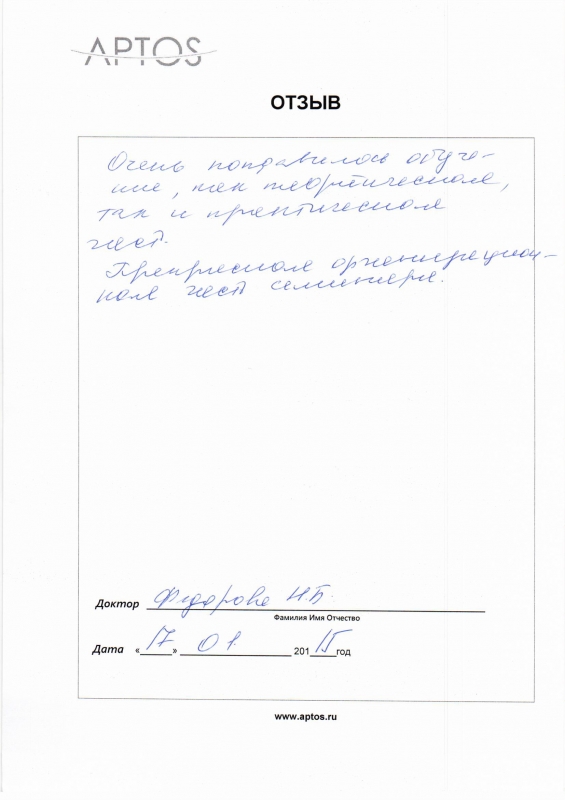 APTOS
ОТЗЫВ
Очень понравилось обуче-
ние, как теоретическая,
так и практическая
част.
Прекрасная организацион-
ная часть семинара.
Доктор Федорова Н.Б.
Фамилия Имя Отчество
Дата «17» 01. 2015 год
www.aptos.ru